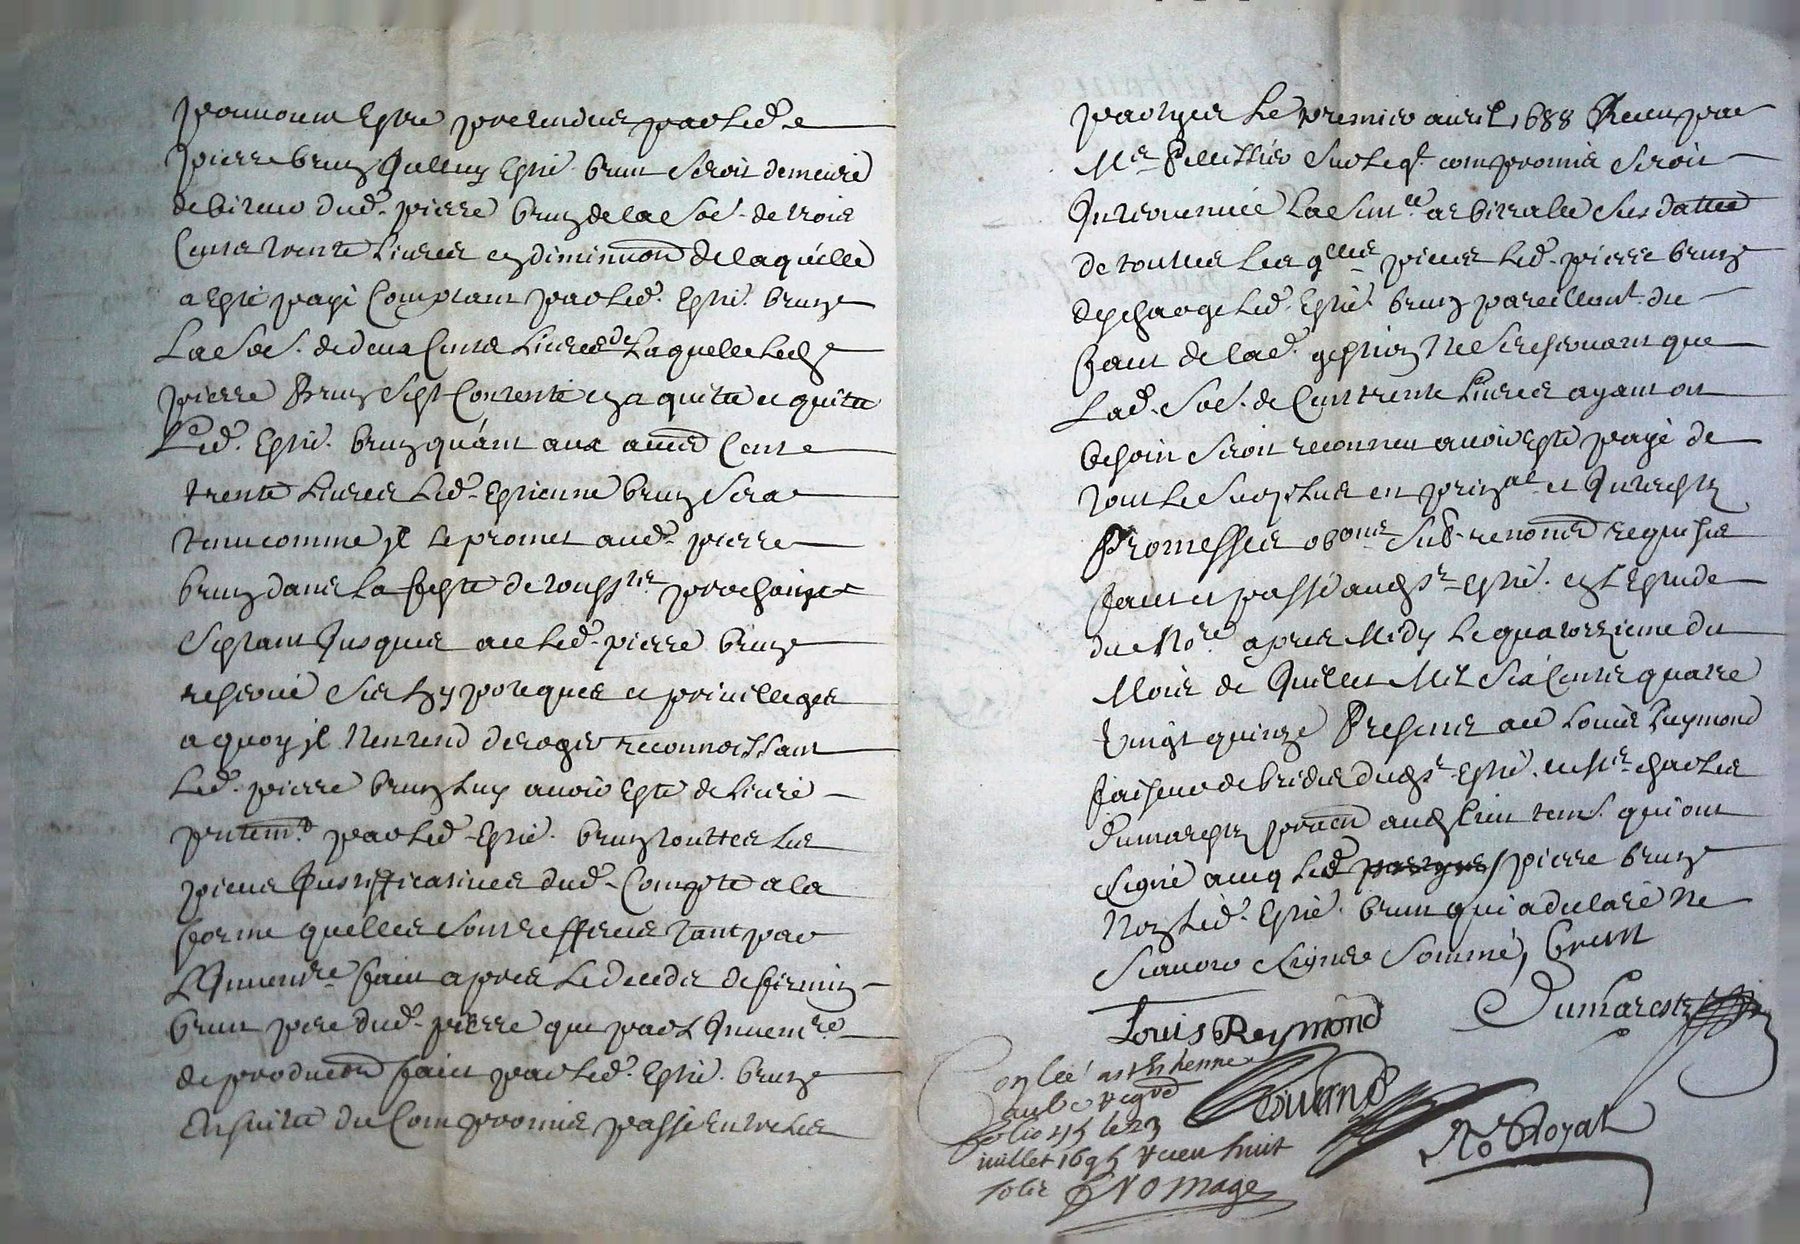 pouvoint Estre pretendues par Led.
pierre brun Icelluy Estie. brun seroit demeuré
debiteur dud. pierre brun de la So.e de trois
Cents trente Livres en diminuon de laquelle
a Esté payé Comptant par Led. Estie. brun
La So.e de deux Cents Livres de Laquelle led.
pierre Brun s'est Contenté en a quitté et quitte
Led. Estie. brun quant aux autres Cent
trente Livres Led. Estienne brun sera
tenu comme jl Le promet aud. pierre
brun dans La feste de touss.ts prochaine
s'estant Jusques a ce Led. pierre brun
reservé ses hypoteques et privilleges
a quoy jl N'entend deroger reconnoissant
Led. pierre brun Luy avoir Esté delivré
p.ntem.t par Led. Estie. brun touttes Les
pieces Justifficatives dud. Compte a la
forme quelles sont reffereés tant par
L'Inventre. fait apres Le decedes de firmin
brun pere dud. pierre que par L'Inventre.
de producon fait par Led. Estie. brun
Ensuitte du Compromis passé Entre Les
parties Le premier avril 1688 Receu par
M.e Pellissier sur Leq.t compromis seroit
Intervenue La Sant.ce arbitralle sus dattée
de touttes Les qlles. pieces Led. pierre brun
descharge Led. Estie. brun pareillemt. du
fait de lad. gestion Ne se reservant que
Lad. So.e de Cent trente Livres ayant ou
besoin seroit reconneu avoir esté payé de
tout Le surplus en prin.al et Interestz
Promesses obons. sub. renonons requises
fait et passé aud. Estie. en L'Estude
du No.re apres Midy Le quatorzieme du
Mois de Juillet Mil Six Cents quatre
vingt quinze Presents a ce Louis Reymond
faiseur de brides dud. s.r Estie. et s.r charles
Dumarestz praticien aud. Lieu tem. qui ont
signé avecq Led. pierre brun
Non Led. Estie. brun qui a declaré Ne
scavoir signer Sommé, brun
Louis Reymond Dumarestz
Conlee a st Estienne
au bc regre
folio 45 le 23
juillet 1695 receu huit
solz Promage
No Royal